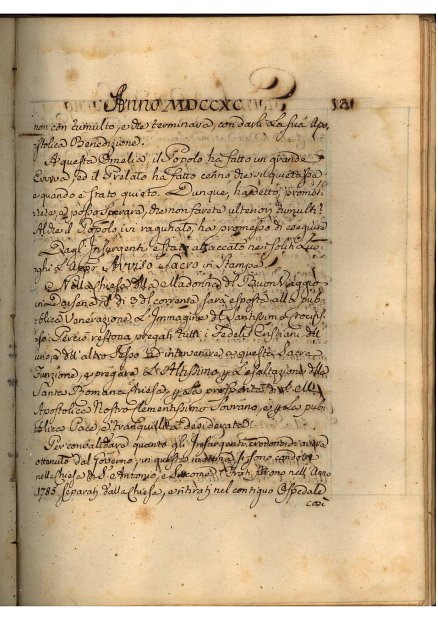 Anno MDCCXC 181
non con tumulto, e che terminava, con darli la sua Apo=
stolica Benedizione.
A questa Omelia, il Popolo ha fatto un grande
Evviva, ed il Prelato ha fatto cenno che si quetasse
e quando e stato quieto. Dunque, ha detto, promet
terete, e posso sperare, che non farete ulteriori tumulti?
Al che il Popolo ivi ragunato, ha promesso di eseguire
Dagl' Insurgenti è stato attaccato ne' soliti Luo
ghi L'appo. Avviso Sacro in Stampa
Nella Chiesa della Madonna di Pavon Viaggio
in Darsena il di 3 del corrente sarà esposta alla pub
blica Venerazione L'Immagine del Santissimo Crocifis
so: Perciò restono pregati tutti i Fedeli Cristiani dell'
uno, e dell' altro Sesso ad intervenire a questa Sacra
Funzione, a pregare L'Altissimo p. L'esaltazione della
Santa Romana Chiesa, p. La prosperità di S. M.
Apostolica Nostro Clementissimo Sovrano, e p. La pub
blica Pace, e tranquillità desiderata.
Per convalidare quanto gli Insurgenti credono di avere
ottenuto dal Governo, in questa mattina si sono condotti
nella Chiesa di S. Antonio, e siccome i furono nell' Anno
1785 separati dalla Chiesa, e ritirati nel contiguo Ospedale
così